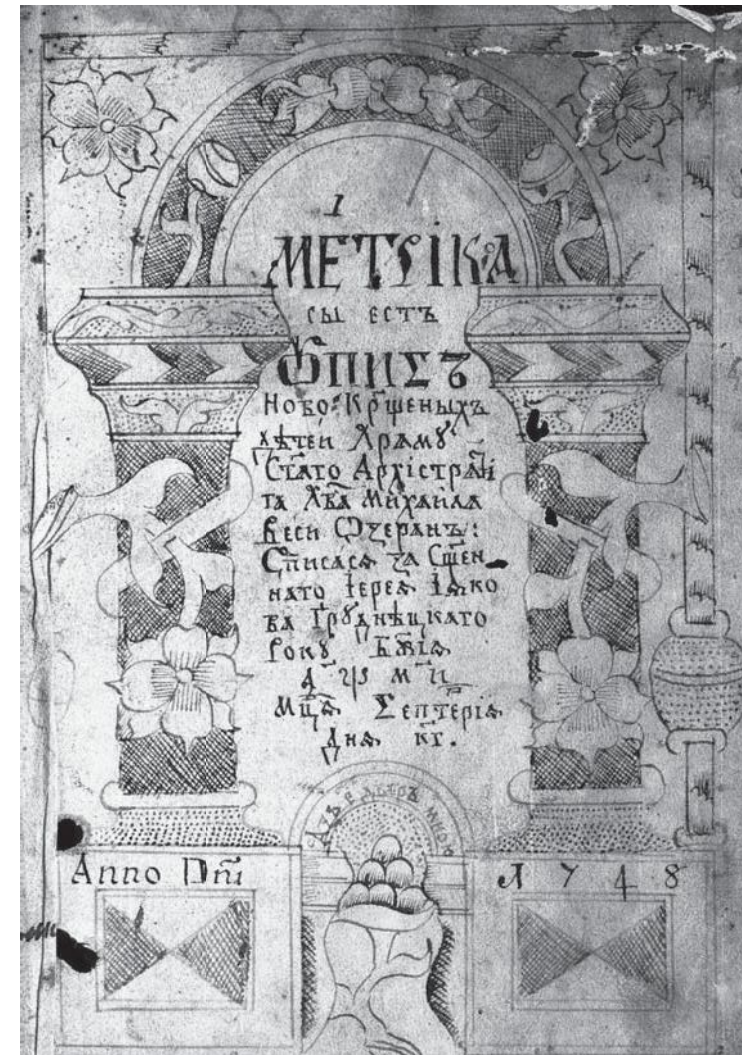 1
МЕТРІКА
СЫ ЕСТЪ
ѾПИСЪ
Ново: Крщеныхъ
дѣтей Храму
Стаго Архістраті
га Хва Михаила
Веси Ѡзеранъ:
Списася за Сщен
наго Іерея Іѧко
ва Грудѣцкаго
Року Бжія
҂аѱ м и
Мцѧ Септеріѧ
Днѧ кг.
Anno Dni
1748